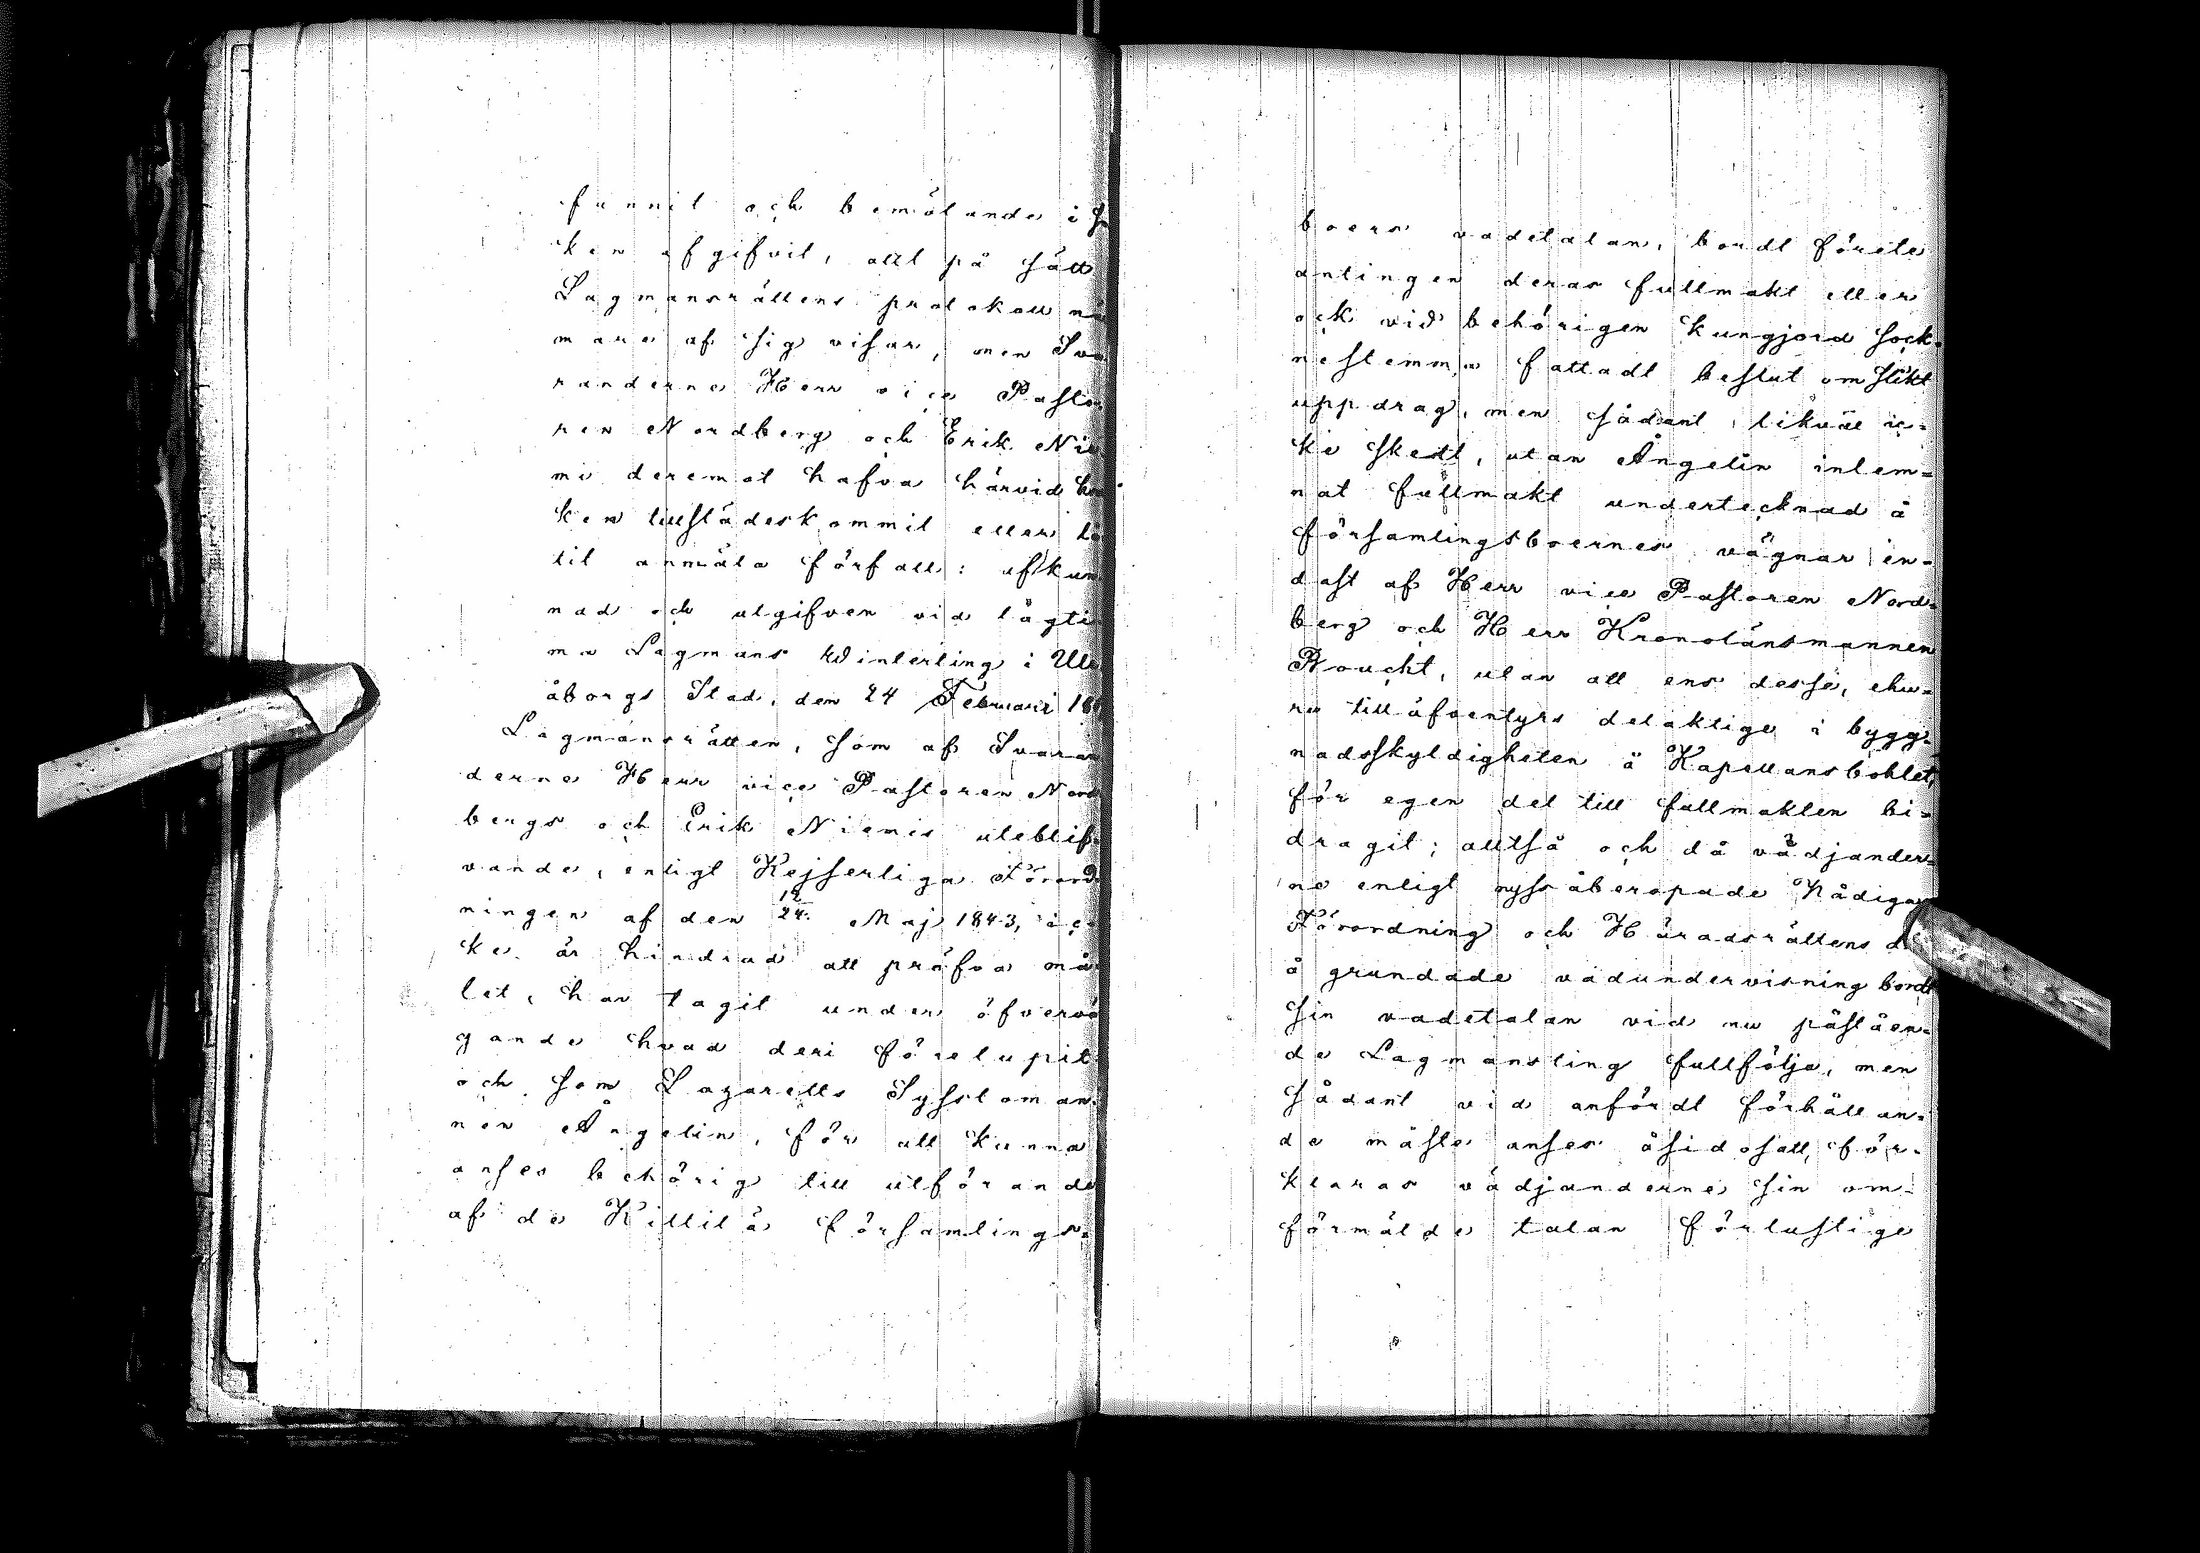 funnit och bemälande i
ken afgifvit, allt på sätt
Lagmansrättens protokoll nä
mare af sig visar, men Sva
randerne Herr vice Pasto
ren Nordberg och Erik Nie
mi deremot hafva härvid hvar
ken tillstädeskommit eller lå
tit anmäla förfall: afkun
nad och utgifven vid lagti
ma Lagmans Winterting i Ule
åborgs Stad, den 24 Februarii 18
Lagmansrätten, som af Svaran
derne Herr vice Pastoren Nord
bergs och Erik Niemis uteblif-
vande, enligt Kejserliga Förord
ningen af den 12/24. Maj 1843, ic-
ke är hindrad att pröfva må
let, har tagit under öfvervä
gande hvad deri förelupit
och som Lazaretts Sysslomans
nen Ångelin, för att kunna
anses behörig till utförande
af de Kittilä församlings-
boers vadetalan, bordt förete
antingen deras fullmakt eller
ock vid behörigen kungjord sock-
nestemma fattadt beslut om slikt
uppdrag, men sådant likväl ic-
ke skedt, utan Ångelin inlem-
nat fullmakt undertecknad å
församlingsboernes vägnar en-
dast af Herr vice Pastoren Nord-
berg och Herr Kronolänsmannen
Boucht, utan att ens desse, ehu-
ru till äfventyrs delaktige i bygg-
nadsskyldigheten å Kapellansbohlet,
för egen del till fullmakten bi-
dragit; alltså och då vädjander-
ne enligt nyssåberopade Nådiga
Förordning och Häradsrättens d
å grundade vadundervisning bordt
sin vadetalan vid nu påståen-
de Lagmansting fullfölja, men
sådant vid anfördt förhållan-
de måste anses åsidosatt, för-
klaras vädjanderne sin om-
förmälde talan förlustige